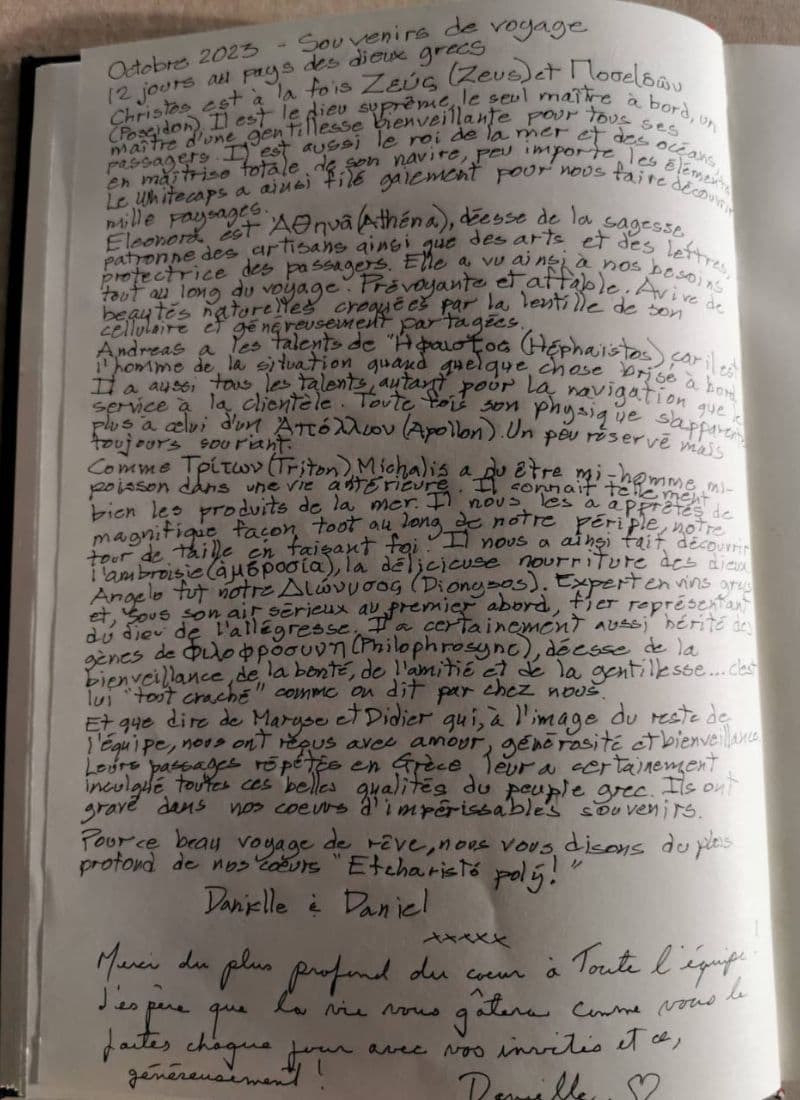 Octobre 2023 - Souvenirs de voyage
12 jours au pays des dieux grecs
Christos est à la fois Ζεύς (Zeus) et Ποσειδών
(Poseidon). Il est le dieu suprême, le seul maître à bord, un
maître d'une gentillesse bienveillante pour tous ses
passagers. Il est aussi le roi de la mer et des océans,
en maîtrise totale de son navire, peu importe les éléments.
Le Whitecaps a ainsi filé gaiement pour nous faire découvrir
mille paysages.
Eleonora est Αθηνά (Athéna), déesse de la sagesse,
patronne des artisans ainsi que des arts et des lettres,
protectrice des passagers. Elle a vu ainsi à nos besoins
tout au long du voyage. Prévoyante et affable. Avive de
beautés naturelles croquées par la lentille de son
cellulaire et généreusement partagées.
Andreas a les talents de Ήφαιστος (Héphaistos) car il est
l'homme de la situation quand quelque chose brise à bord.
Il a aussi tous les talents, autant pour la navigation que le
service à la clientèle. Toutefois son physique s'apparente
plus à celui d'un Απόλλων (Apollon). Un peu réservé mais
toujours souriant.
Comme Τρίτων (Triton), Michalis a dû être mi-homme mi-
poisson dans une vie antérieure. Il connaît tellement
bien les produits de la mer. Il nous les a apprêtés de
magnifique façon, tout au long de notre périple, notre
tour de taille en faisant foi. Il nous a ainsi fait découvrir
l'ambroisie (αμβροσία), la délicieuse nourriture des dieux.
Angelo fut notre Διώνυσος (Dionysos). Expert en vins grecs
et, sous son air sérieux au premier abord, fier représentant
du dieu de l'allégresse. Il a certainement aussi hérité des
gènes de Φιλοφρόσυνη (Philophrosyne), déesse de la
bienveillance, de la bonté, de l'amitié et de la gentillesse... c'est
lui "tout craché" comme on dit par chez nous.
Et que dire de Maryse et Didier qui, à l'image du reste de
l'équipe, nous ont reçus avec amour, générosité et bienveillance.
Leurs passages répétés en Grèce leur a certainement
inculqué toutes ces belles qualités du peuple grec. Ils ont
gravé dans nos coeurs d'impérissables souvenirs.
Pour ce beau voyage de rêve, nous vous disons du plus
profond de nos coeurs "Efcharistó polý!"
Danielle & Daniel
xxxxx
Merci du plus profond du coeur à Toute l'équipe.
J'espère que la vie vous gâtera comme vous le
faites chaque jour avec vos invités et ce,
généreusement!
Danielle ♡